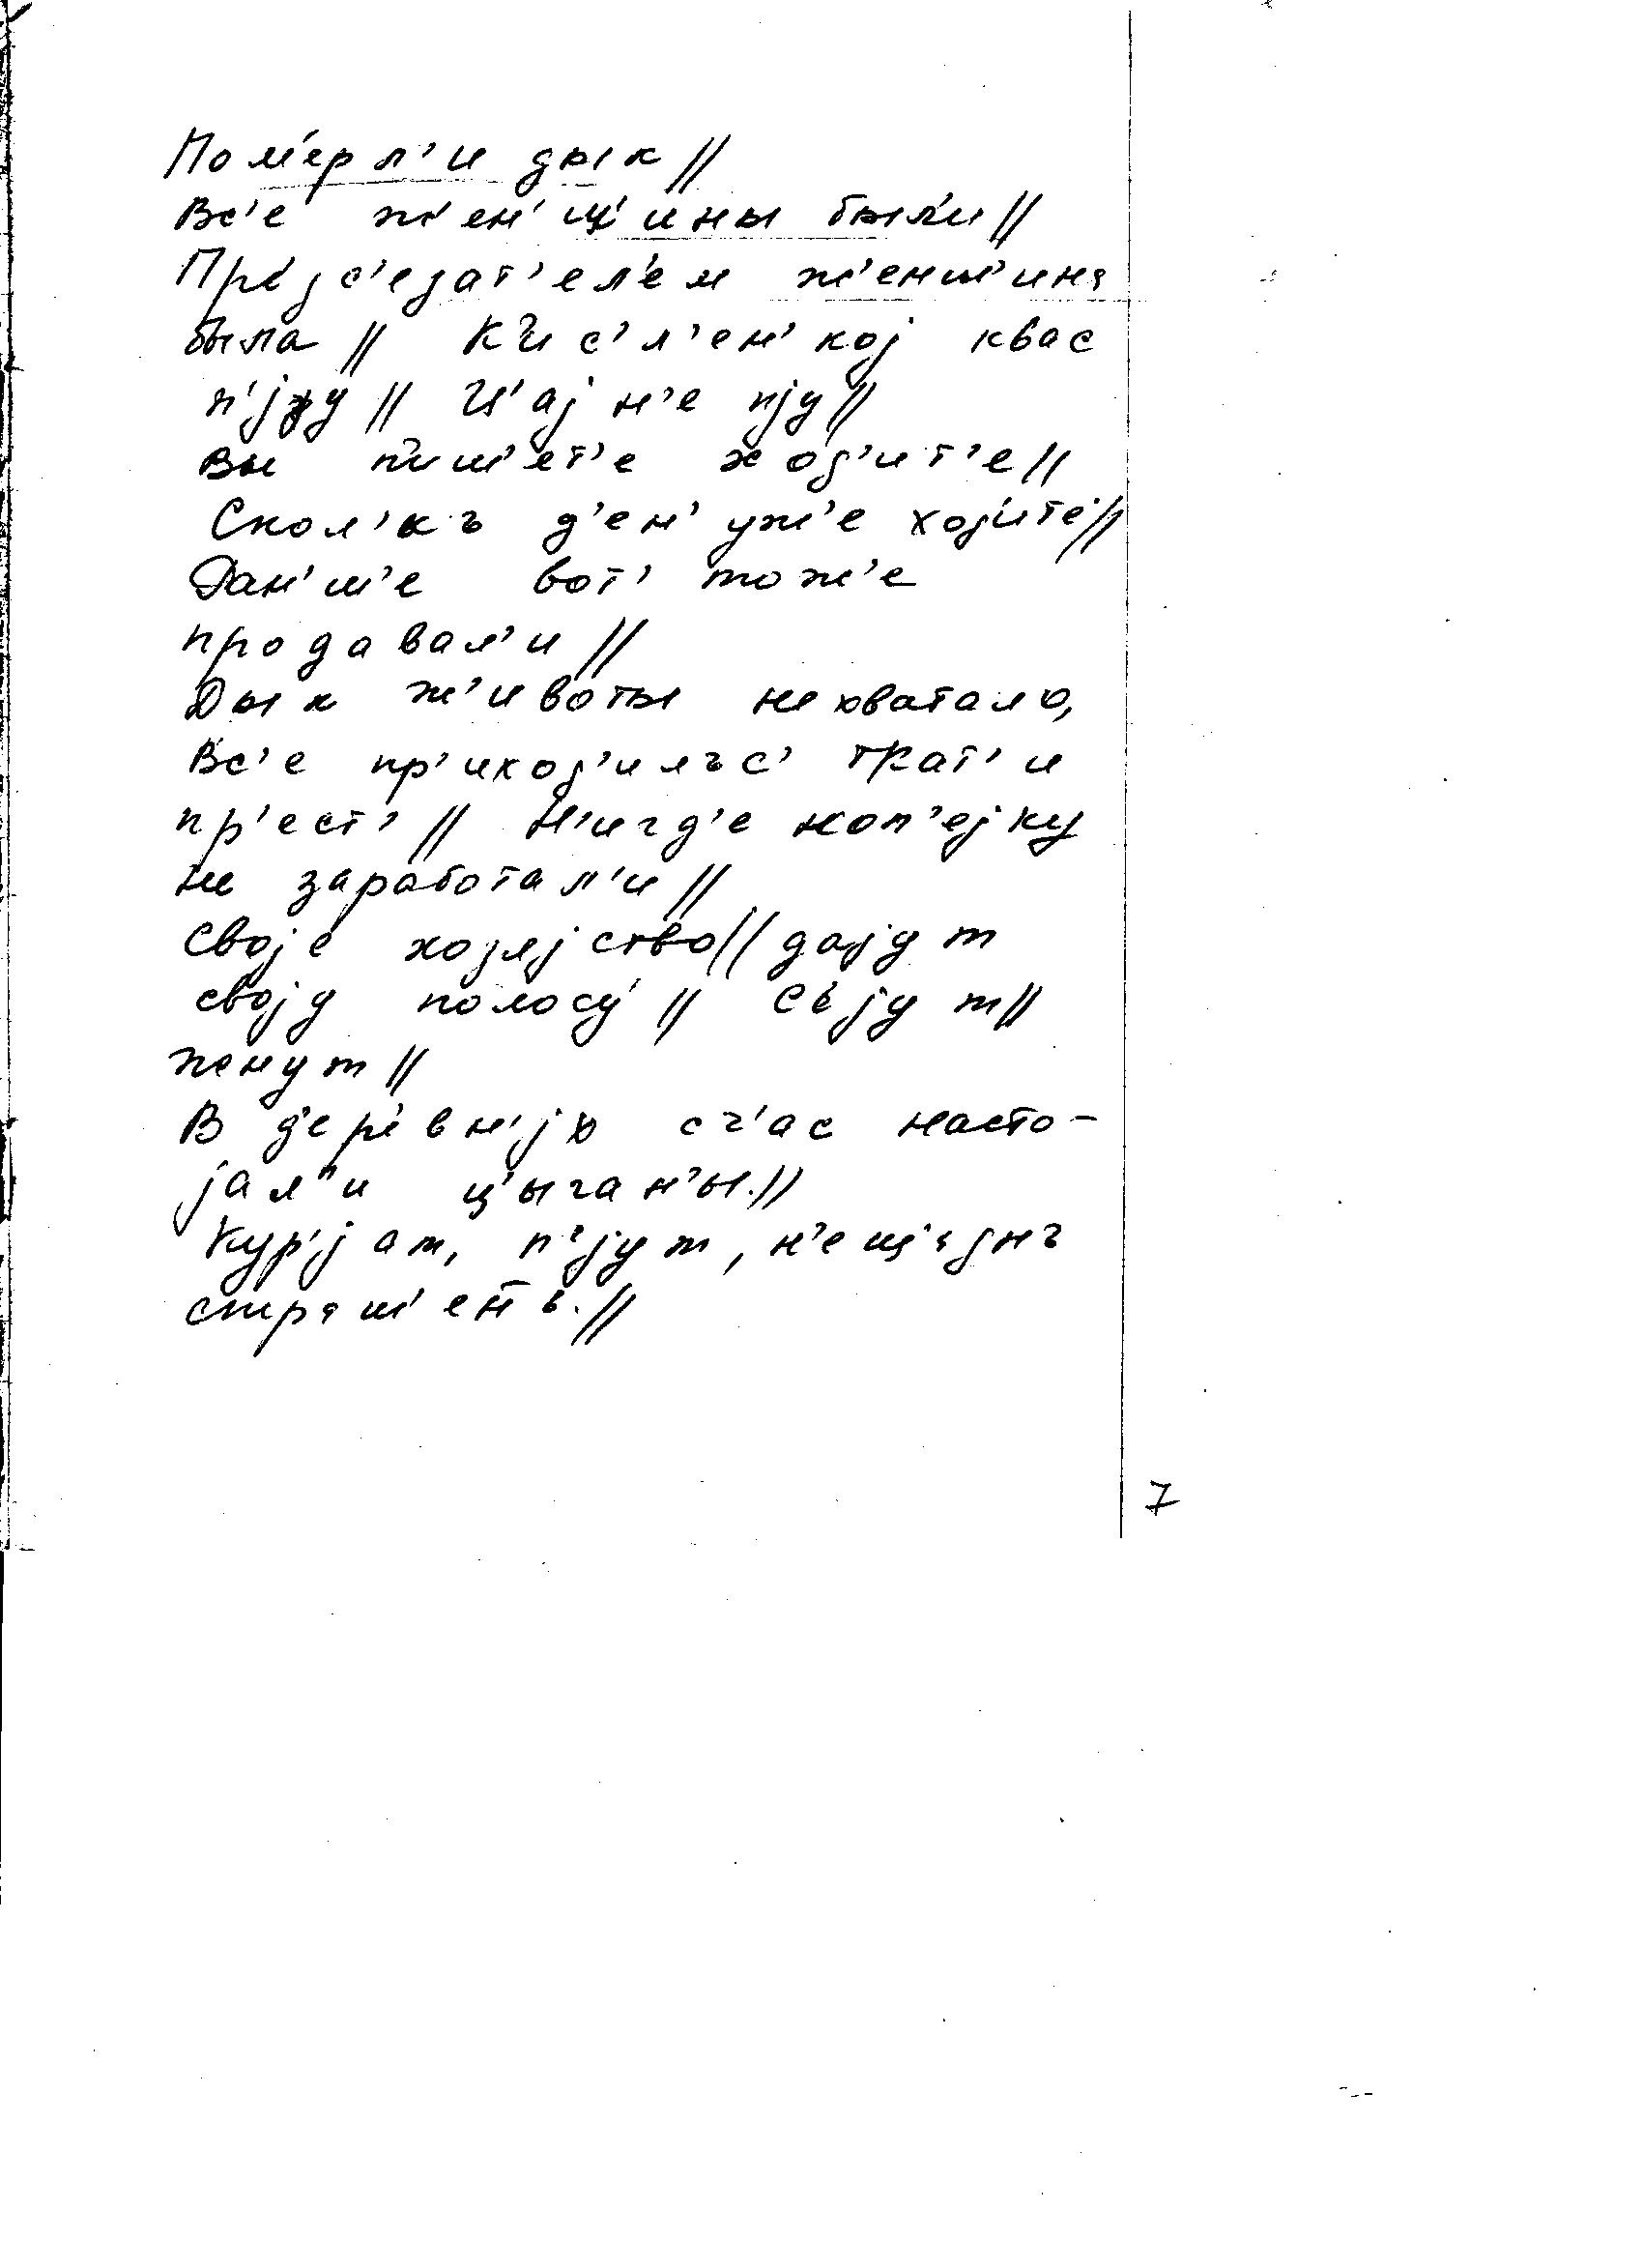 Пом'ерл'и дык //
Вс'е ж'ен'щ'ины был'и //
Пр'едс'едат'ел'ем ж'енш'инъ
была // К'ис'л'ен'кој квас
п'јру // Ч'ај н'е пју //
Вы п'иш'ет'е ход'ит'е //
Скол'къ д'ен' уж'е ход'ит'е //
Дан'ш'е вот' тож'е
продавал'и //
Дык ж'ивоты не хватало,
Вс'е пр'иход'илъс' трат'и
пр'ест' // Н'игд'е коп'ејку
не заработал'и //
Своје хозяјство // дајут
своју полосу́ // С'еjут //
женут //
В д'ер'евн'jю сч'ас насто-
јал'и ц'ыган'ы. //
Кур'јат, п'јут, н'ещ'аднъ
страш'енъ. //
7